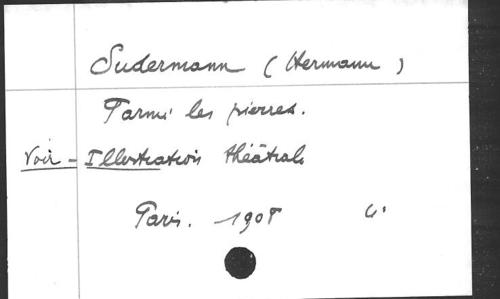 Sudermann (Hermann)
Parmi les pierres.
Voir - Illustration théâtrale
Paris. 1908 4°